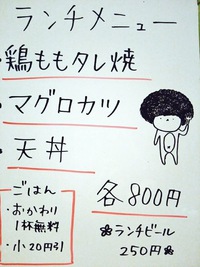 ランチメニュー
・鶏ももタレ焼
・マグロカツ
・天丼
各800円
ごはん
・おかわり
1杯無料
・小20円引
ランチビール
250円